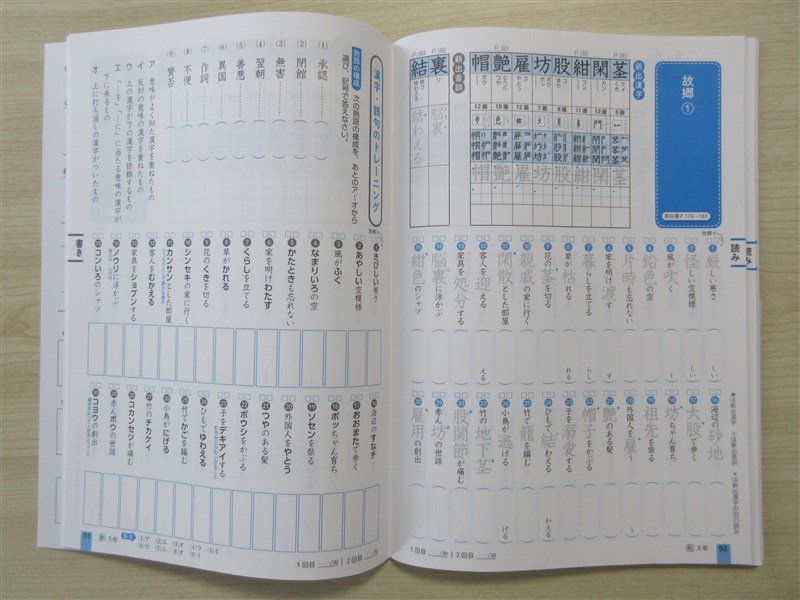 故郷①
教科書P.178〜193
新出漢字
茎
閑
紺
股
坊
雇
艶
帽
新出音訓
裏
脳裏
結
結わえる
読み
①厳しい寒さ
②怪しい空模様
③風が吹く
④鉛色の空
⑤片時も忘れない
⑥家を明け渡す
⑦暮らしを立てる
⑧草が枯れる
⑨花の茎を切る
⑩親戚の家に行く
⑪閑散とした部屋
⑫客人を迎える
⑬家具を処分する
⑭脳裏に浮かぶ
⑮紺色のシャツ
⑯海辺の砂地
⑰大股で歩く
⑱坊ちゃん育ち
⑲祖先を祭る
⑳外国人を雇う
㉑艶のある髪
㉒帽子をかぶる
㉓子を溺愛する
㉔ひもで結わえる
㉕竹で籠を編む
㉖小鳥が逃げる
㉗竹の地下茎
㉘股関節が痛む
㉙赤ん坊の世話
㉚雇用の創出
3年 52
1回目 /30 2回目 /30
漢字・語句のトレーニング
熟語の構成 次の熟語の構成を、あとのア〜オから
選び、記号で答えなさい。
(1) 承認
(2) 閉館
(3) 無害
(4) 翌朝
(5) 善悪
(6) 異国
(7) 作詞
(8) 不便
(9) 賛否
ア 意味がよく似た漢字を重ねたもの
イ 反対の意味の漢字を重ねたもの
ウ 上の漢字が下の漢字を修飾するもの
エ 「―を」「―に」に当たる意味の漢字が
下に来るもの
オ 上に打ち消しの漢字がついたもの
書き
①きびしい寒さ
②あやしい空模様
③風がふく
④なまりいろの空
⑤かたときも忘れない
⑥家を明けわたす
⑦くらしを立てる
⑧草がかれる
⑨花のくきを切る
⑩シンセキの家に行く
⑪カンサンとした部屋
⑫客人をむかえる
⑬家具をショブンする
⑭ノウリに浮かぶ
⑮コンいろのシャツ
⑯海辺のすなチ
⑰おおまたで歩く
⑱ボッちゃん育ち
⑲ソセンを祭る
⑳外国人をやとう
㉑つやのある髪
㉒ボウシをかぶる
㉓子をデキアイする
㉔ひもでゆわえる
㉕竹でかごを編む
㉖小鳥がにげる
㉗竹のチカケイ
㉘コカンセツが痛む
㉙赤んボウの世話
㉚コヨウの創出
53 3年
1回目 /30 2回目 /30